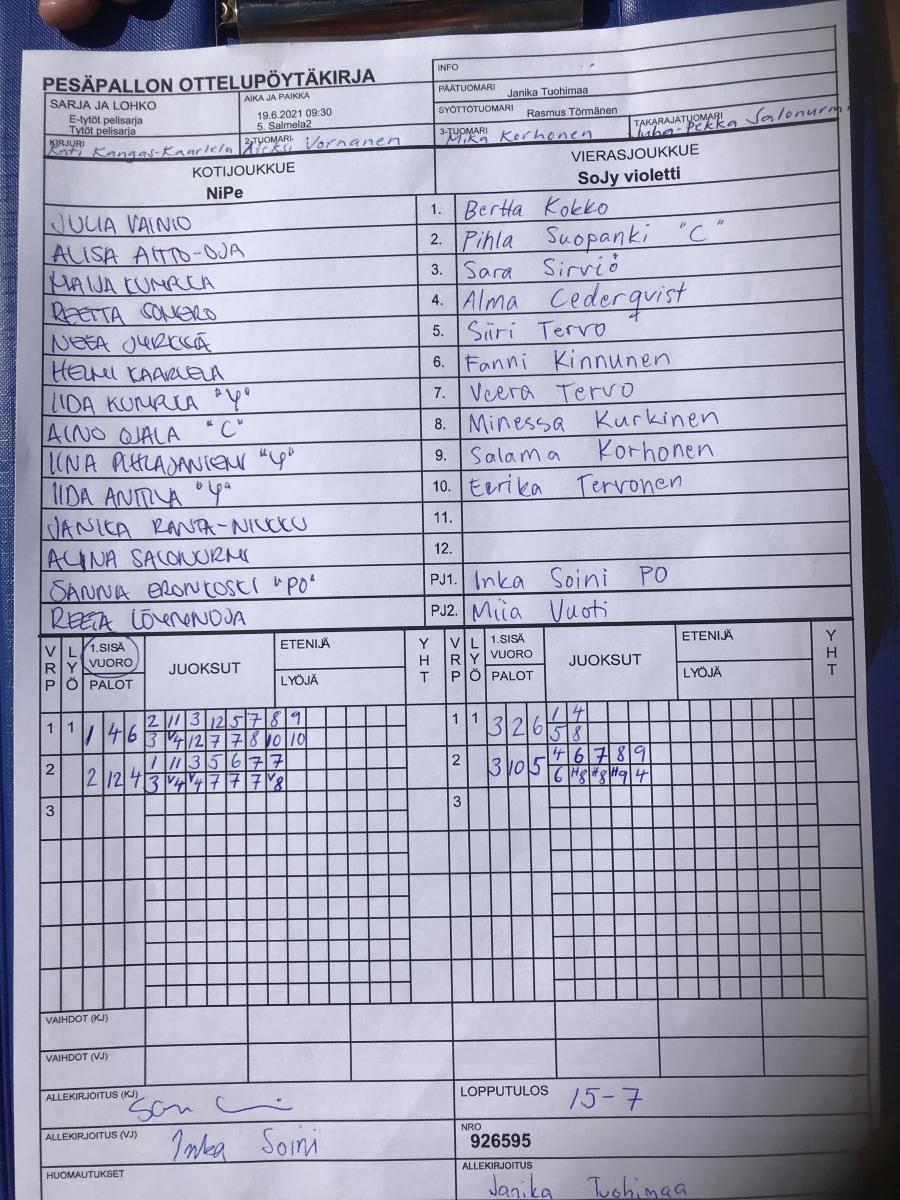 PESÄPALLON OTTELUPÖYTÄKIRJA
INFO
PÄÄTUOMARI Janika Tuohimaa
SARJA JA LOHKO
E-tytöt pelisarja
Tytöt pelisarja
AIKA JA PAIKKA
19.6.2021 09:30
5. Salmela2
SYÖTTÖTUOMARI Rasmus Törmänen
KIRJURI Kati Kangas-Kaarlela
2-TUOMARI Aleksi Vornanen
3-TUOMARI Mika Korhonen
TAKARAJATUOMARI Juha-Pekka Salonurmi
KOTIJOUKKUE
NiPe
VIERASJOUKKUE
SoJy violetti
JULIA VAINIO 1. Bertta Kokko
ALISA AITTO-OJA 2. Pihla Suopanki "C"
MAIJA KUMPULA 3. Sara Sirviö
REETTA 4. Alma Cederqvist
NEEA JYRKKÄ 5. Siiri Tervo
HELMI KAARLELA 6. Fanni Kinnunen
IIDA KUMPULA "Y" 7. Veera Tervo
AINO OJALA "C" 8. Minessa Kurkinen
IINA PIHLAJANIEMI "Y" 9. Salama Korhonen
IIDA ANTTILA "Y" 10. Eerika Tervonen
JANIKA RANTA-NIKKU 11.
ALINA SALONURMI 12.
SANNA ERONKOSKI "PO" PJ1. Inka Soini PO
REETA PJ2. Miia Vuoti
VRP LYÖ 1.SISÄ VUORO PALOT JUOKSUT ETENIJÄ LYÖJÄ YHT VRP LYÖ 1.SISÄ VUORO PALOT JUOKSUT ETENIJÄ LYÖJÄ YHT
1 1 1 4 6 2 11 3 12 5 7 8 9 1 1 3 2 6 1 4
3 V4 12 7 7 8 10 10 5 8
2 2 12 4 1 11 3 5 6 7 7 2 3 10 5 4 6 7 8 9
3 V4 V4 7 7 7 V8 6 H8 H8 H9 4
3 3
VAIHDOT (KJ)
VAIHDOT (VJ)
ALLEKIRJOITUS (KJ)
LOPPUTULOS 15-7
ALLEKIRJOITUS (VJ) Inka Soini
NRO
926595
HUOMAUTUKSET
ALLEKIRJOITUS
Janika Tuohimaa